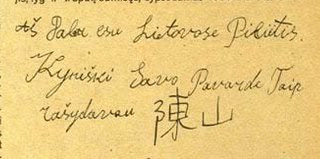 aš Daba esu Lietovose Pilietis.
Kyniški Savo Pavarde Taip
rašydavau 陳山